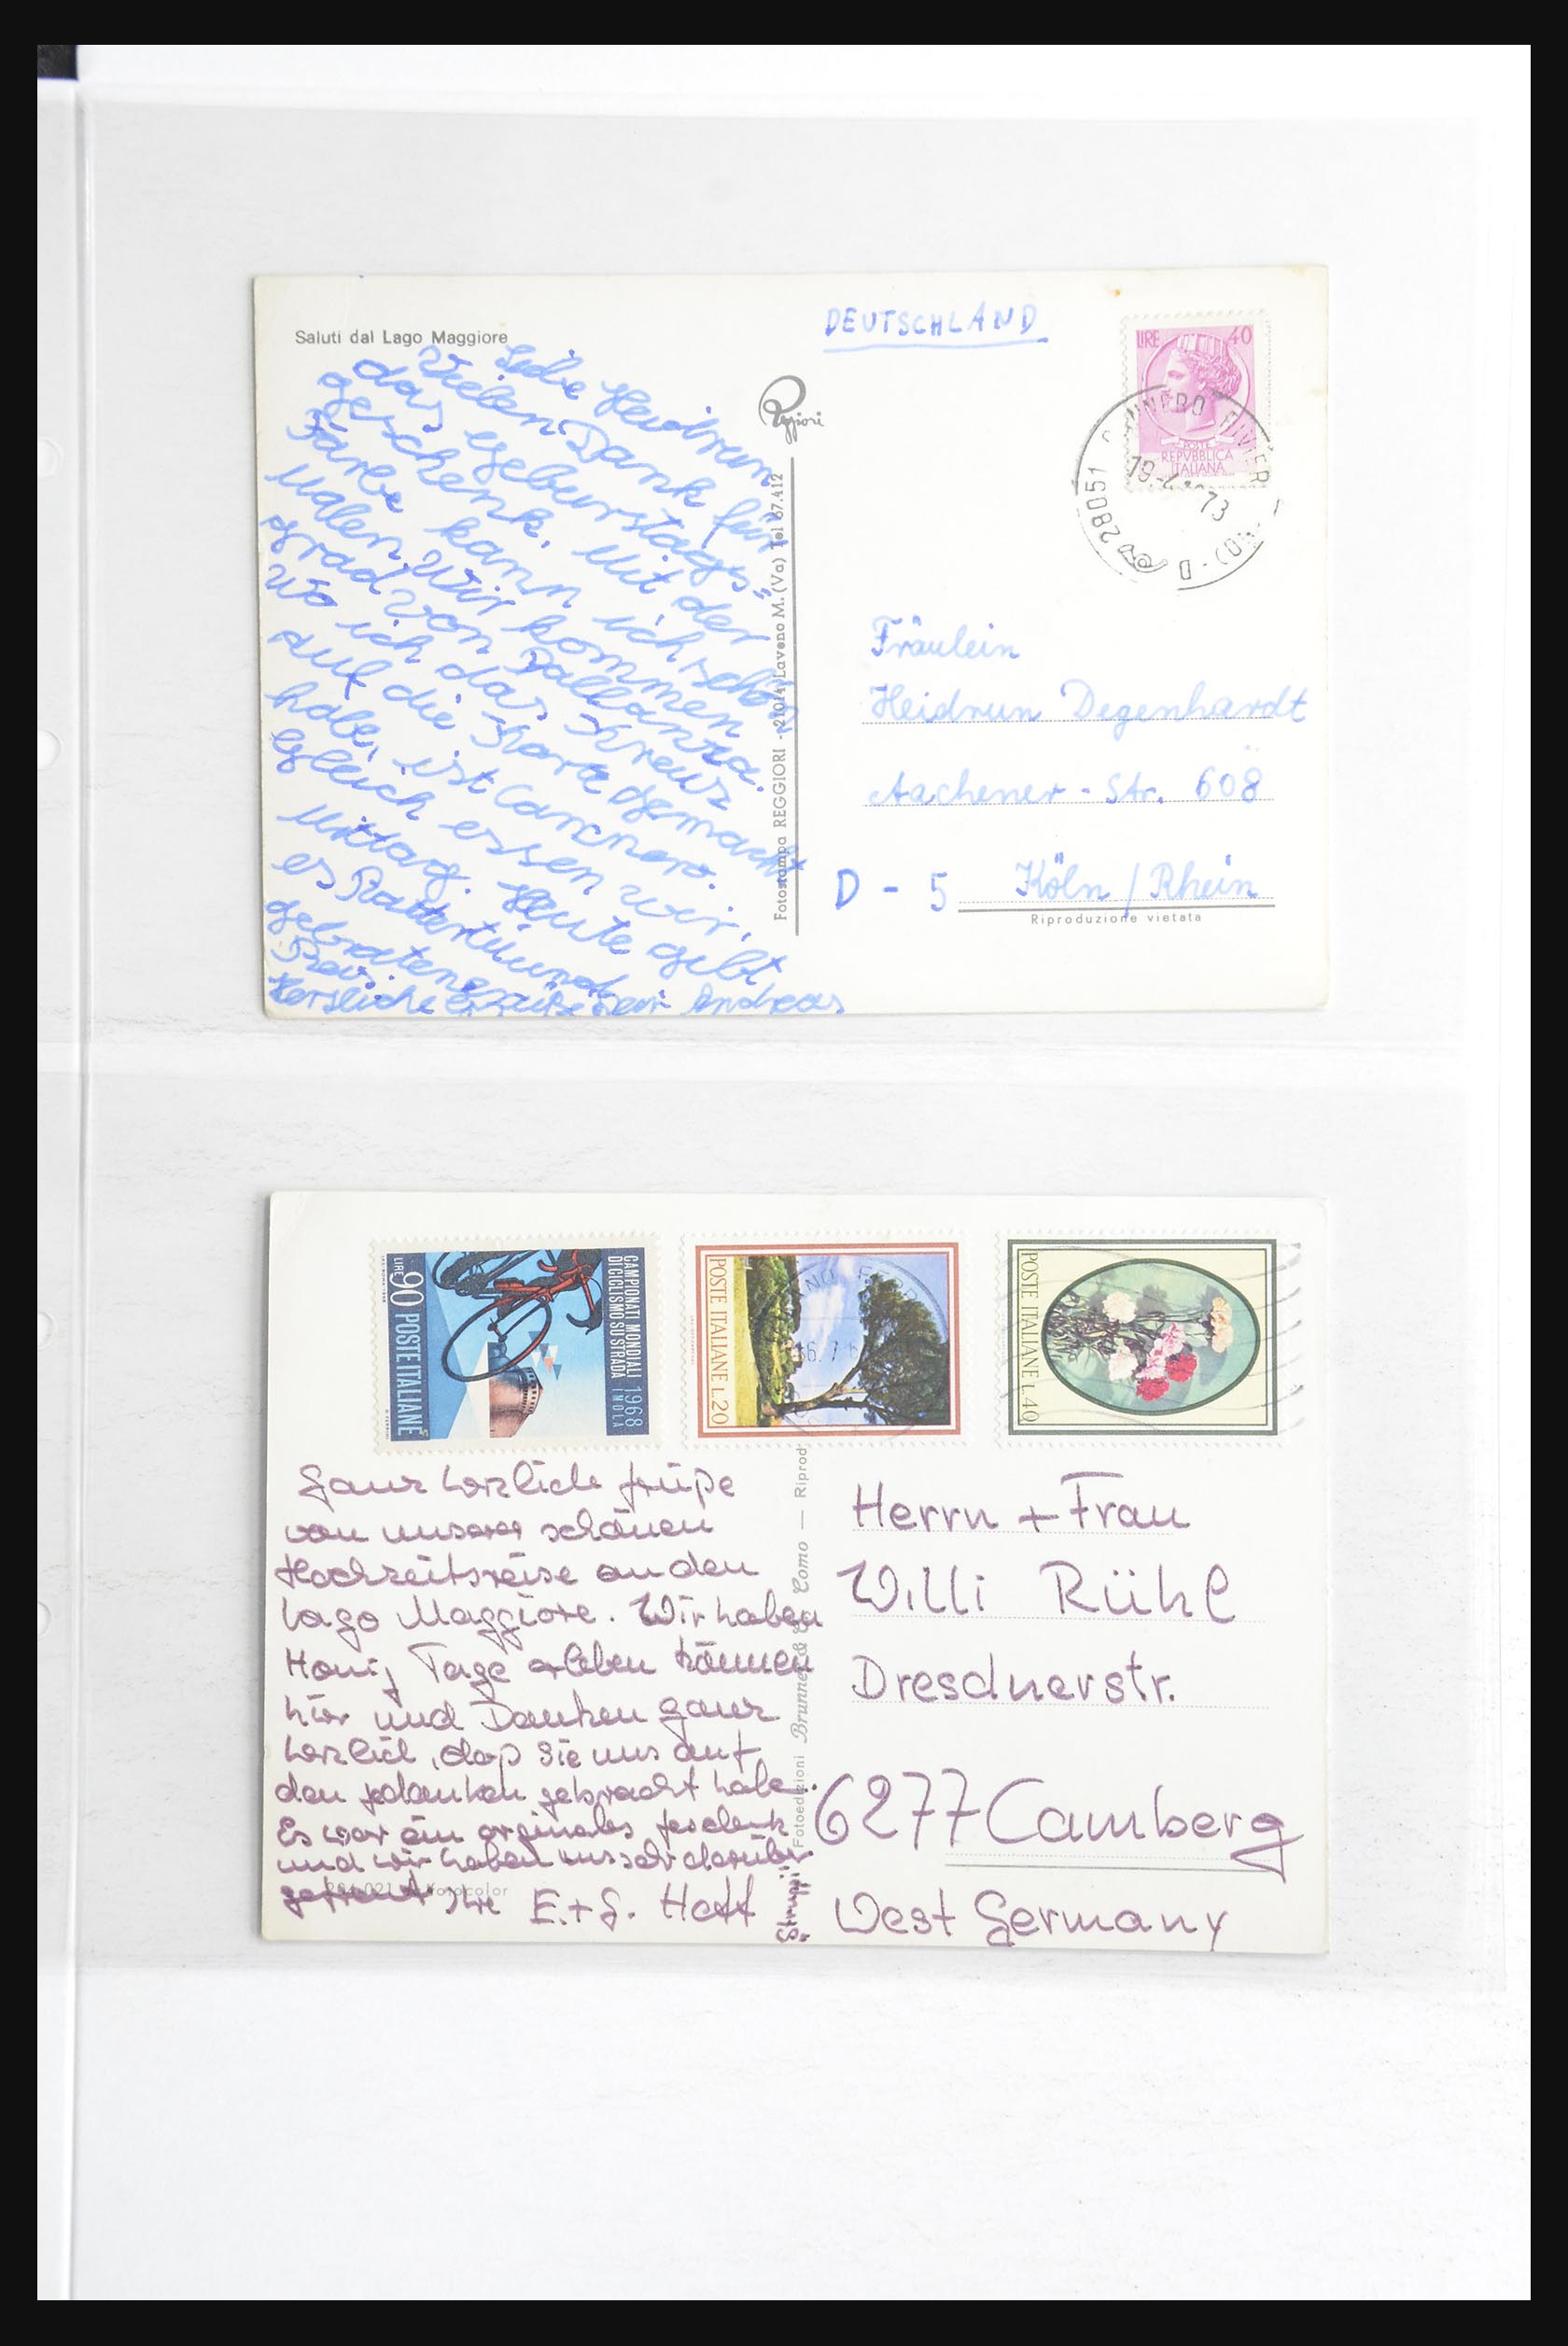 Saluti dal Lago Maggiore
Liebe Heidrun
Vielen Dank für
das Geburtstags-
geschenk. Mit der
Farbe kann ich schön
Malen. Wir kommen
grad von Pallanza.
Wo ich das Kreuz
auf die Karte gemacht
habe, ist Cannero.
Gleich essen wir,
Mittag. Heute gibt
es und
gebratenen
Reis.
Herzliche Grüße Dein Andreas
DEUTSCHLAND
Reggiori
Fotostampa REGGIORI - 21014 Laveno M. (Va) Tel 67.412
LIRE 40
POSTE
REPVBBLICA
ITALIANA
28051
73
Fräulein
Heidrun Degenhardt
Aachener - Str. 608
D - 5 Köln / Rhein
Riproduzione vietata
CAMPIONATI MONDIALI 1968
DI CICLISMO SU STRADA IMOLA
LIRE 90 POSTE ITALIANE
POSTE ITALIANE L.20
POSTE ITALIANE L.40
Ganz herzliche Grüße
von unserer schönen
Hochzeitsreise an den
Lago Maggiore. Wir haben
Honig Tage erleben können
hier und Danken ganz
herzlich, daß Sie uns auf
den gedanken gebracht habe.
Es war ein orginales geschenk
und wir haben uns sehr darüber
gefreut Ihre E.+G. Hett
"Struppi"
Fotoedizioni Brunner & C. Como — Riprod
Fotocolor
Herrn + Frau
Willi Rühl
Dresdnerstr.
6277 Camberg
West Germany